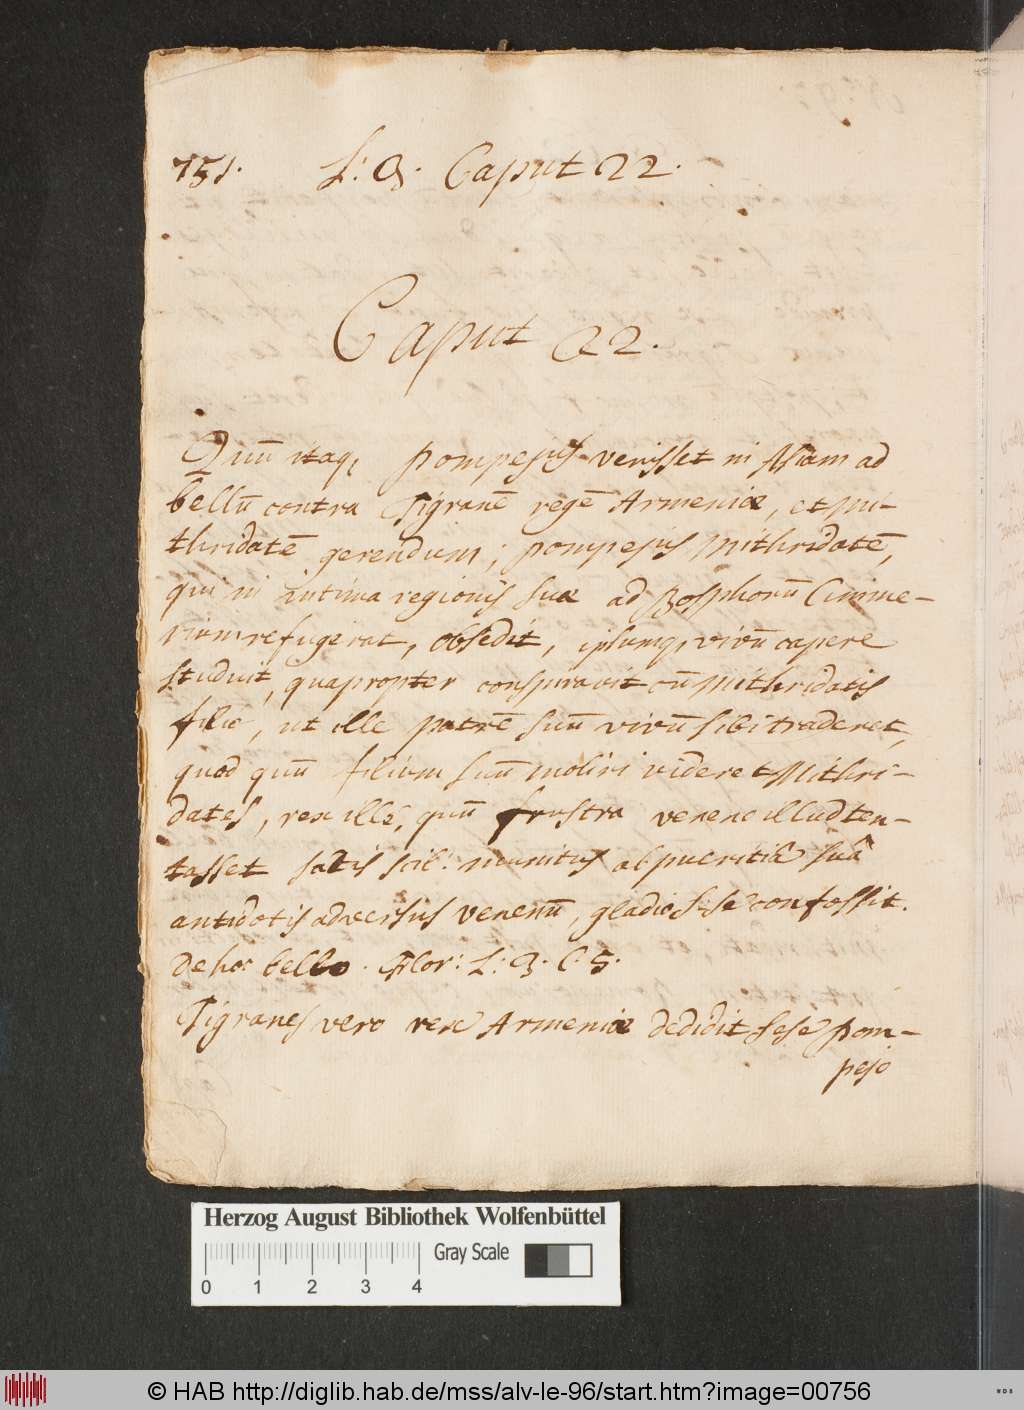 751. L: 3. Caput 22.
Caput 22.
Quum̄ itaq, Pompejus venisset in Asiam ad
bellū contra Tigranē regē Armeniæ, et Mi-
thridatē gerendum; Pompejus Mithridatē,
qui in intima regionis suæ ad Bosphorū Cimme-
rium refugerat, obsedit, ipsumq, vivū capere
studuit, quapropter conspiravit cū Mithridatis
filio, ut ille patrē suū vivū sibi traderet,
quod quū filium suū moliri videret Mithri-
dates, rex ille, quū frustra veneno illud ten-
tasset satis scil: munitus a pueritiâ suâ
antidotis adversus venenū, gladio se se confossit.
De hoc bello. Flor: L: 3. C. 5.
Tigranes vero rex Armeniæ dedidit sese Pom-
pejo
Herzog August Bibliothek Wolfenbüttel
Gray Scale
0 1 2 3 4
© HAB http://diglib.hab.de/mss/alv-le-96/start.htm?image=00756